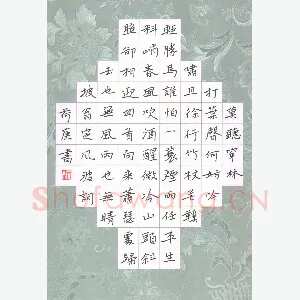 莫聽穿林
打葉聲何妨吟
嘯且徐行竹杖芒鞋
輕勝馬誰怕一蓑煙雨任平生
料峭春風吹酒醒微冷山頭斜
照卻相迎回首向來蕭瑟處歸
去也無風雨也無晴
坡翁定風波詞
庚書
Shufawang.CN